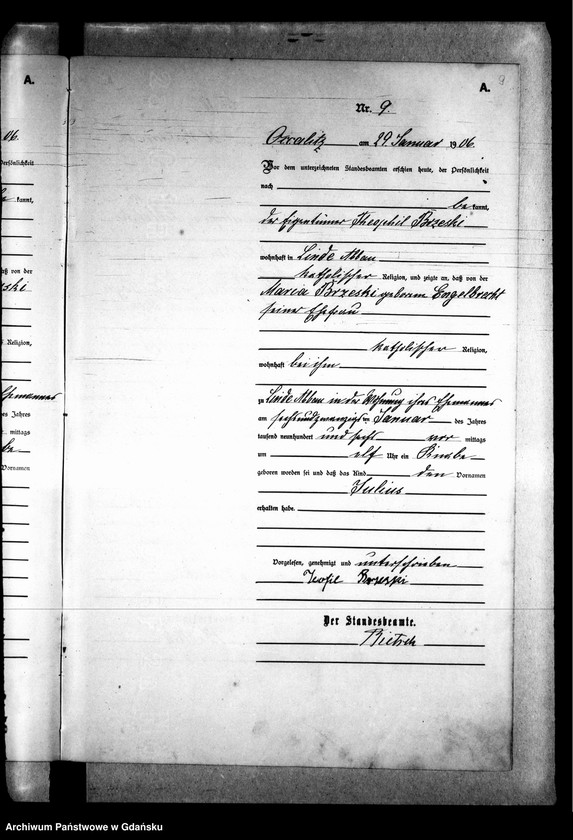 A.
06.
Persönlichkeit
kannt,
daß von der
ski
Religion,
Ehemannes
des Jahres
mittags
be
Vornamen
9
A.
Nr. 9
am 29 Januar 1906.
Vor dem unterzeichneten Standesbeamten erschien heute, der Persönlichkeit
nach
be kannt,
der Eigentümer Theophil Brzeski
wohnhaft in Linde Abbau
katholischer Religion, und zeigte an, daß von der
Maria Brzeski geborenen Engelbrecht
seiner Ehefrau
katholischer Religion,
wohnhaft bei ihm
zu Linde Abbau in der Wohnung ihres Ehemannes
am sechsundzwanzigsten Januar des Jahres
tausend neunhundert und sechs vor mittags
um elf Uhr ein Knabe
geboren worden sei und daß das Kind den Vornamen
Julius
erhalten habe.
Vorgelesen, genehmigt und unterschrieben
Teofil Brzeski
Der Standesbeamte.
Archiwum Państwowe w Gdańsku